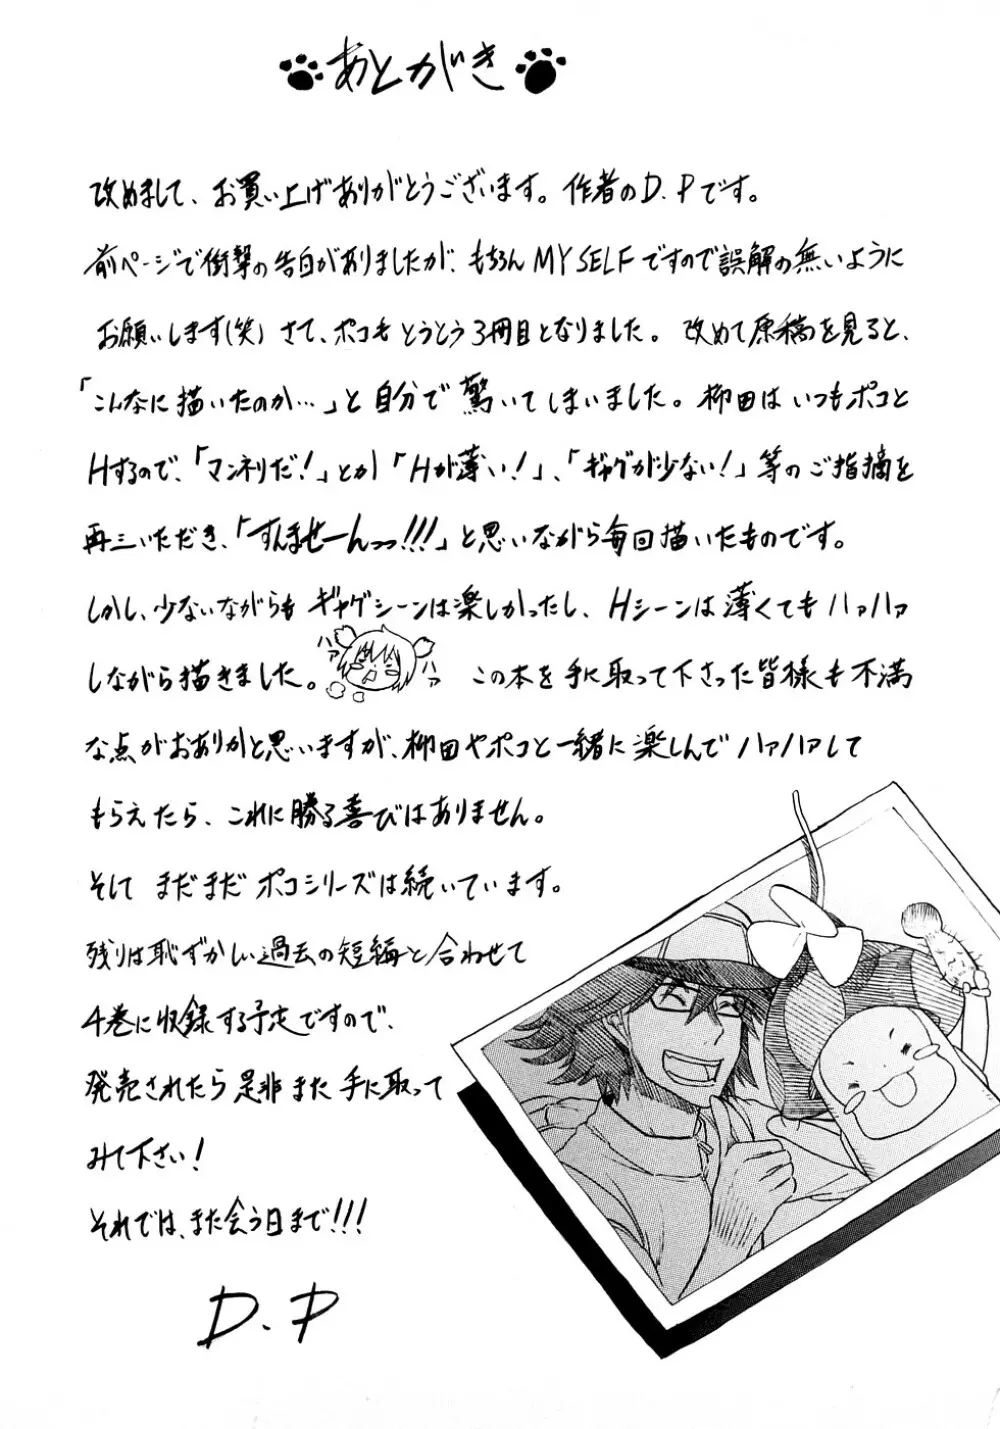 あとがき
改めまして、お買い上げありがとうございます。作者のD.Pです。
前ページで衝撃の告白がありましたが、もちろんMYSELFですので誤解の無いように
お願いします(笑)さて、ポコもとうとう3冊目となりました。改めて原稿を見ると、
「こんなに描いたのか…」と自分で驚いてしまいました。柳田はいつもポコと
Hするので、「マンネリだ!」とか「Hが薄い!」、「ギャグが少ない!」等のご指摘を
再三いただき、「すんませーんっっ!!!」と思いながら毎回描いたものです。
しかし、少ないながらもギャグシーンは楽しかったし、Hシーンは薄くてもハァハァ
しながら描きました。 ハァ ハァ この本を手に取って下さった皆様も不満
な点がおありかと思いますが、柳田やポコと一緒に楽しんでハァハァして
もらえたら、これに勝る喜びはありません。
そして まだまだ ポコシリーズは続いています。
残りは恥ずかしい過去の短編と合わせて
4巻に収録する予定ですので、
発売されたら是非また手に取って
みて下さい!
それでは、また会う日まで!!!
D.P